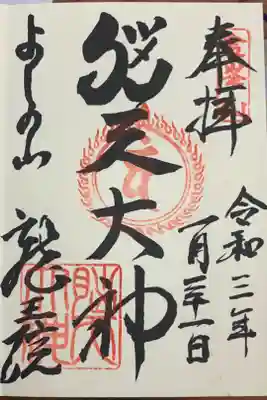 奉拝
令和三年
一月二十一日
脳天大神
よしの山 龍王院